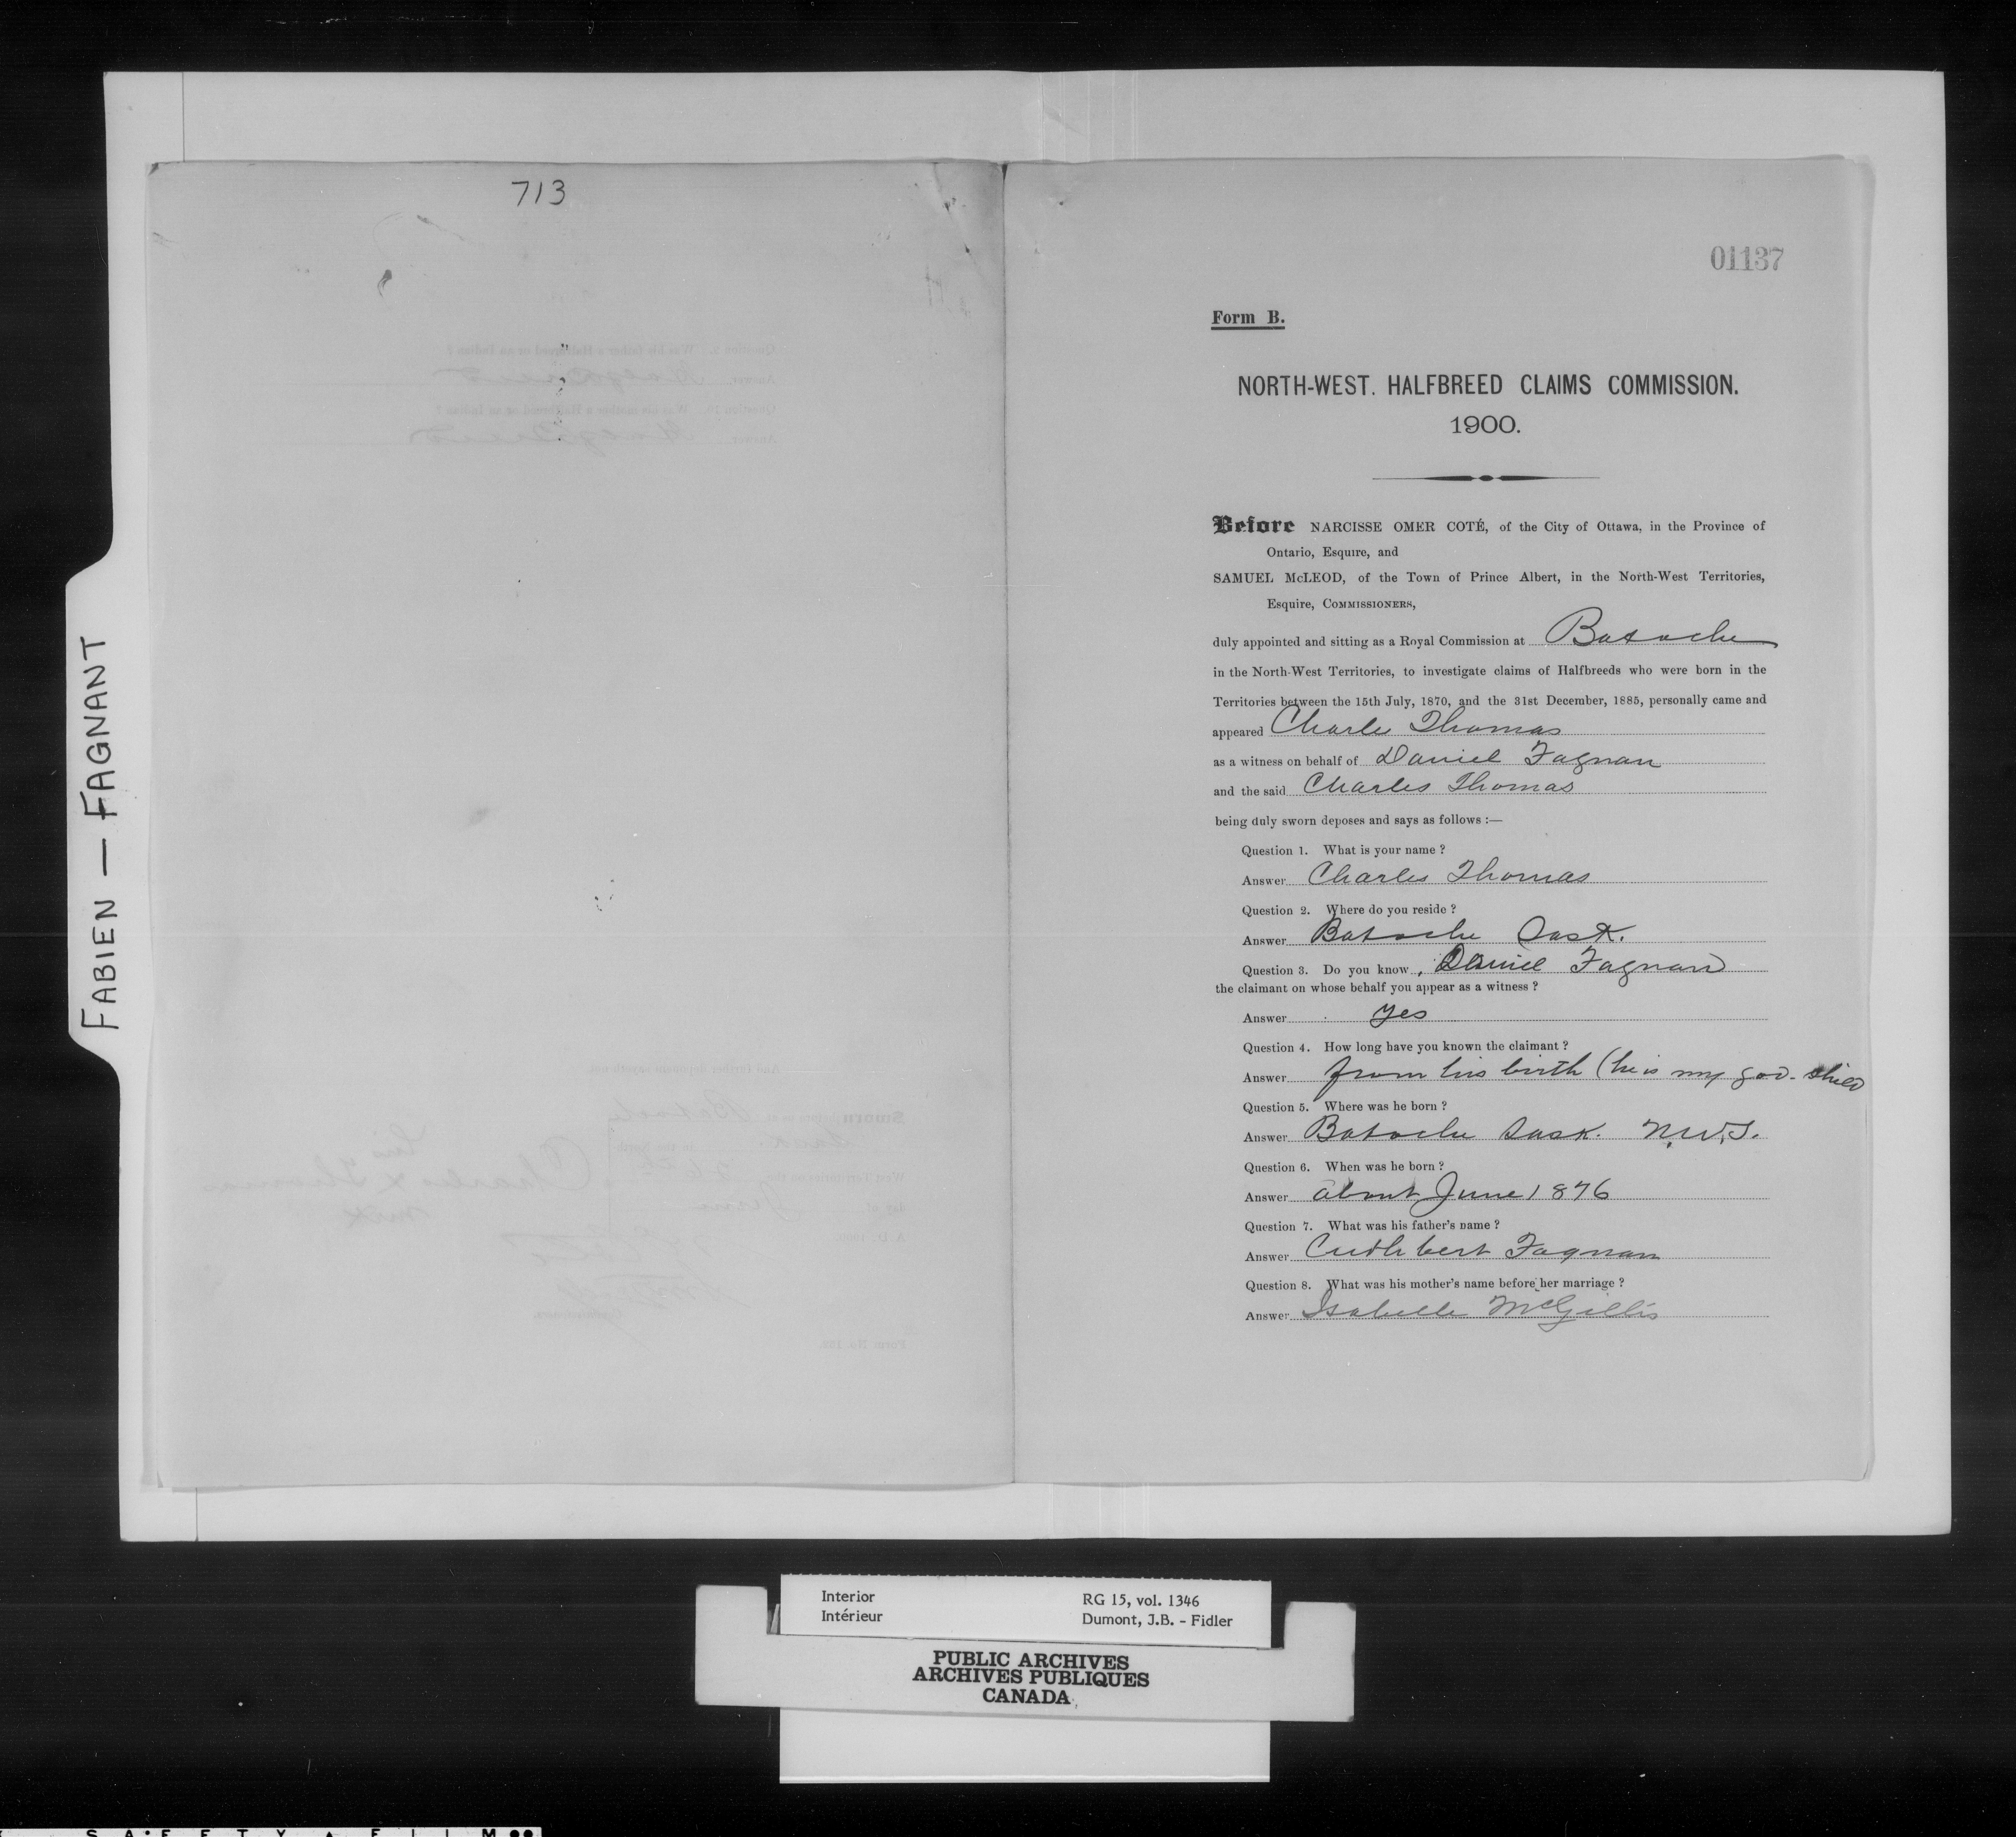 713
FABIEN — FAGNANT
01137
Form B.
NORTH-WEST. HALFBREED CLAIMS COMMISSION.
1900.
Before NARCISSE OMER COTÉ, of the City of Ottawa, in the Province of
Ontario, Esquire, and
SAMUEL McLEOD, of the Town of Prince Albert, in the North-West Territories,
Esquire, COMMISSIONERS,
duly appointed and sitting as a Royal Commission at Batoche
in the North-West Territories, to investigate claims of Halfbreeds who were born in the
Territories between the 15th July, 1870, and the 31st December, 1885, personally came and
appeared Charles Thomas
as a witness on behalf of Daniel Fagnan
and the said Charles Thomas
being duly sworn deposes and says as follows :—
Question 1. What is your name ?
Answer Charles Thomas
Question 2. Where do you reside ?
Answer Batoche Sask.
Question 3. Do you know, Daniel Fagnan
the claimant on whose behalf you appear as a witness ?
Answer yes
Question 4. How long have you known the claimant ?
Answer from his birth (he is my god-child
Question 5. Where was he born ?
Answer Batoche Sask. N.W.T.
Question 6. When was he born ?
Answer about June 1876
Question 7. What was his father's name ?
Answer Cuthbert Fagnan
Question 8. What was his mother's name before her marriage ?
Answer Isabelle McGillis
Interior
Intérieur
RG 15, vol. 1346
Dumont, J.B. - Fidler
PUBLIC ARCHIVES
ARCHIVES PUBLIQUES
CANADA
SAFETY FILM